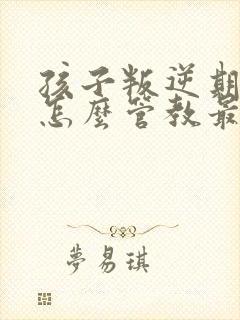 孩子叛逆期
怎麼管教最
夢易琪